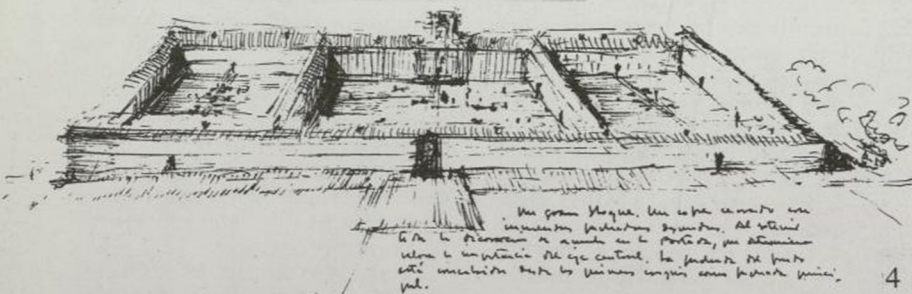 Un gran bloque. Un cofre cerrado con
inmensas fachadas desnudas. Al exterior
toda la decoración se acumula en la Portada, que determina
valora la importancia del eje central. La fachada del fondo
está concebida desde los primeros croquis como fachada princi-
pal.
4